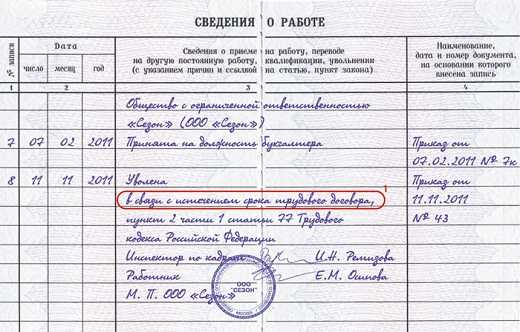 СВЕДЕНИЯ О РАБОТЕ
№ записи
Дата
Сведения о приеме на работу, переводе
на другую постоянную работу, квалификации, увольнении
(с указанием причин и ссылкой на статью, пункт закона)
Наименование,
дата и номер документа,
на основании которого
внесена запись
число месяц год
1 2 3 4
Общество с ограниченной ответственностью
«Сезон» (ООО «Сезон»)
7 07 02 2011 Принята на должность бухгалтера Приказ от
07.02.2011 № 7к
8 11 11 2011 Уволена Приказ от
в связи с истечением срока трудового договора, 11.11.2011
1
пункт 2 части 1 статьи 77 Трудового № 43
кодекса Российской Федерации
Инспектор по кадрам И.Н. Ремизова
Работник Е.М. Осипова
М. П. ООО «Сезон»
ООО
"СЕЗОН"